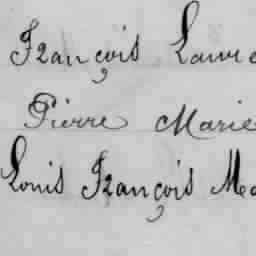 François
Pierre Marie
Louis François